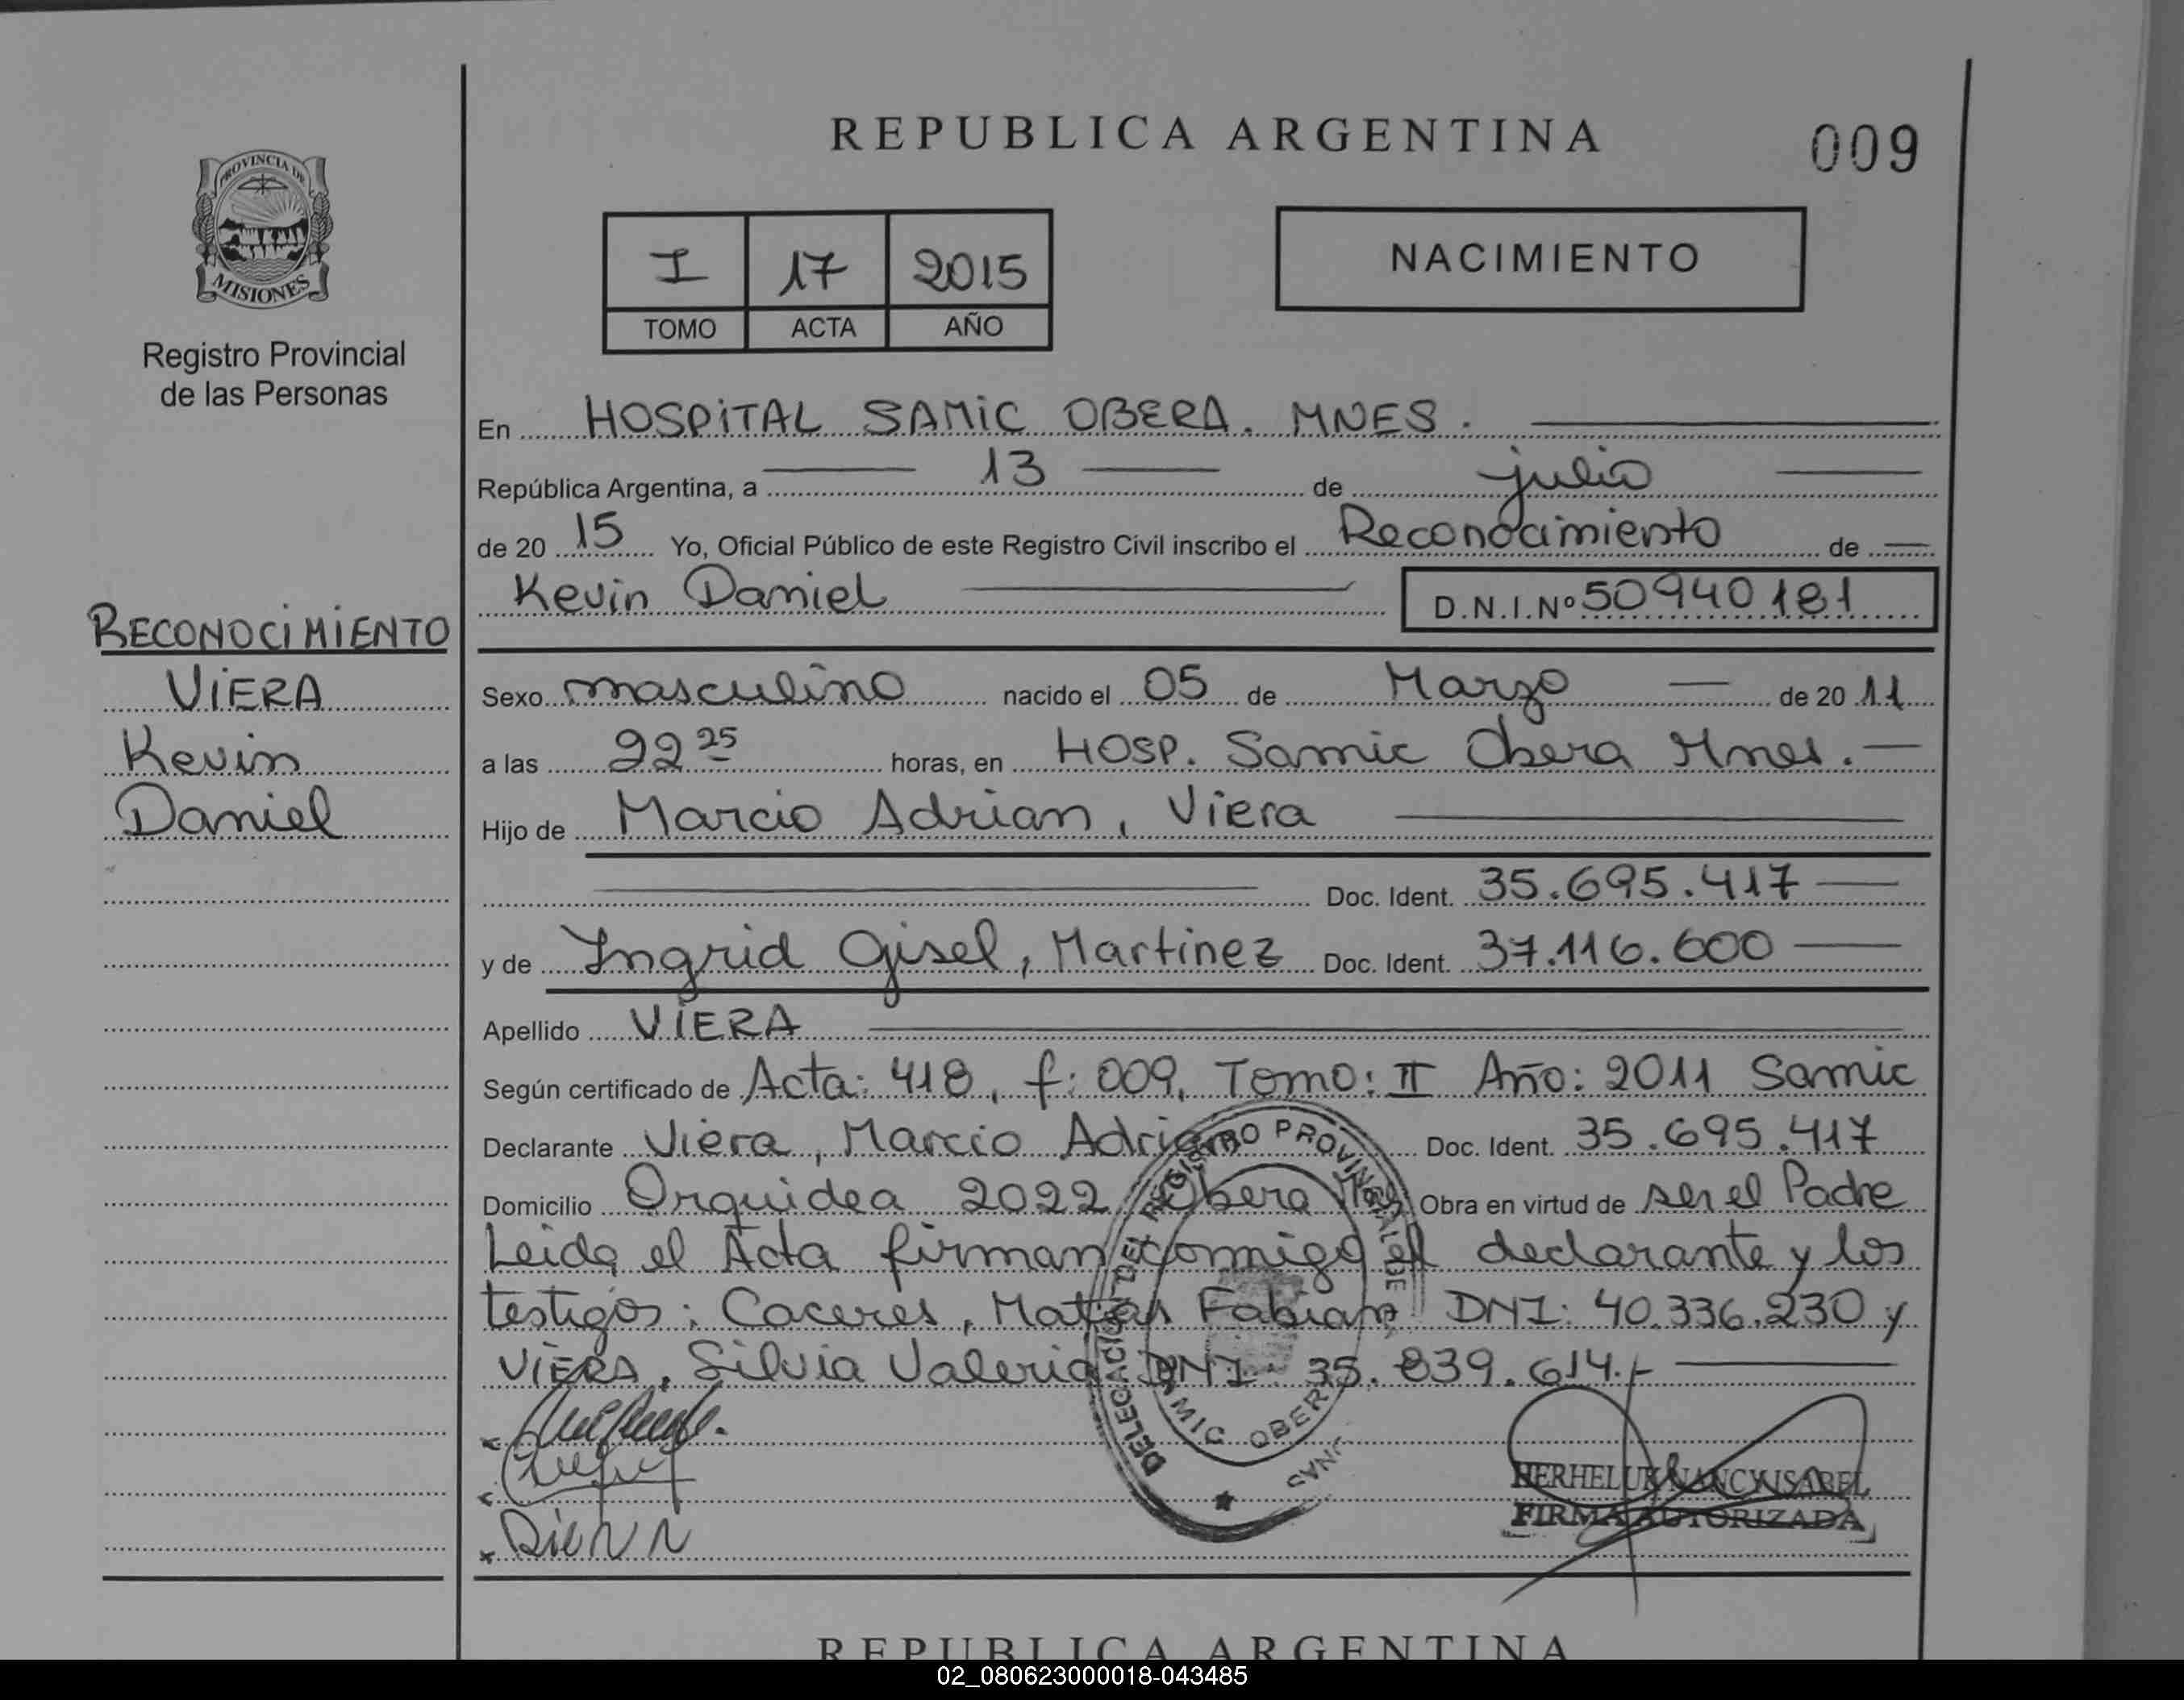 REPUBLICA ARGENTINA
009
PROVINCIA DE
MISIONES
Registro Provincial
de las Personas
I 17 2015
TOMO ACTA AÑO
NACIMIENTO
En HOSPITAL SAMIC OBERA. MNES.
República Argentina, a 13 de julio
de 20 15 Yo, Oficial Público de este Registro Civil inscribo el Reconocimiento de
Kevin Daniel D.N.I.Nº 50940181
RECONOCIMIENTO
VIERA
Kevin
Daniel
Sexo masculino nacido el 05 de Marzo de 20 11
a las 22 25 horas, en HOSP. Samic Obera Mnes.
Hijo de Marcio Adrian, Viera
Doc. Ident. 35.695.417
y de Ingrid Gisel, Martinez Doc. Ident. 37.116.600
Apellido VIERA
Según certificado de Acta: 418, f: 009, Tomo: II Año: 2011 Samic
Declarante Viera, Marcio Adrian Doc. Ident. 35.695.417
Domicilio Orquidea 2022 Obera Obra en virtud de ser el Padre
Leida el Acta firman conmigo el declarante y los
testigos: Caceres, Matias Fabian DNI: 40.336.230 y
VIERA, Silvia Valeria DNI: 35.839.614.-
DELEGACIÓN DEL REGISTRO PROVINCIAL DE
SAMIC OBERA
HERHELUK NANCY ISABEL
FIRMA AUTORIZADA
REPUBLICA ARGENTINA
02_080623000018-043485